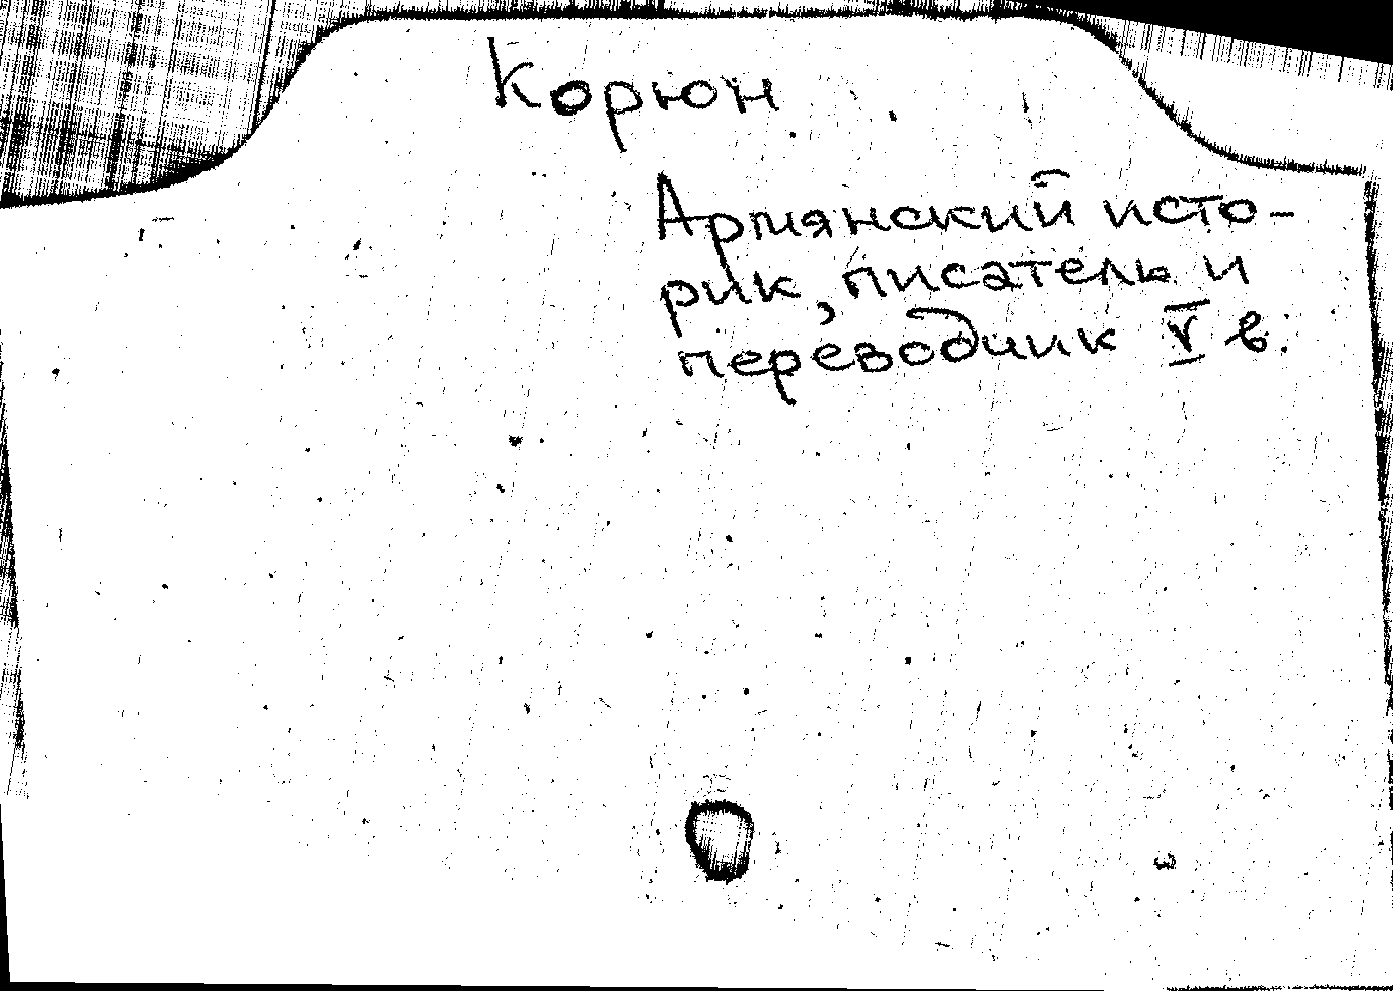 Корюн
Армянский исто-
рик, писатель и
переводчик V в.